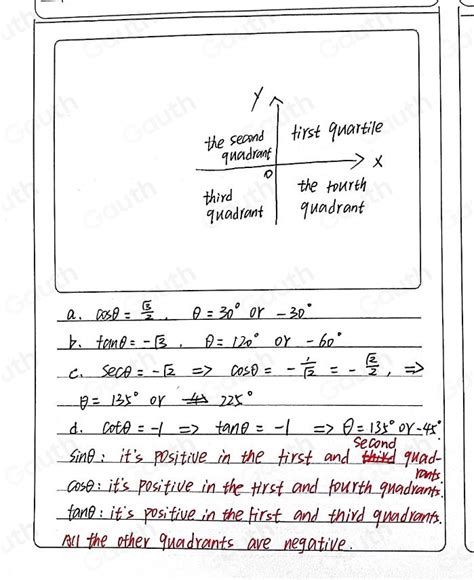 Y
the second
quadrant
first quartile
X
O
third
quadrant
the fourth
quadrant
a. cosθ = √3/2 , θ = 30° or -30°
b. tanθ = -√3 , θ = 120° or -60°
c. secθ = -√2 => cosθ = -1/√2 = -√2/2 , =>
θ = 135° or 225°
d. cotθ = -1 => tanθ = -1 => θ = 135° or -45°
sinθ: it's positive in the first and third second quadrants
cosθ: it's positive in the first and fourth quadrants.
tanθ: it's positive in the first and third quadrants.
All the other quadrants are negative.
Gauth